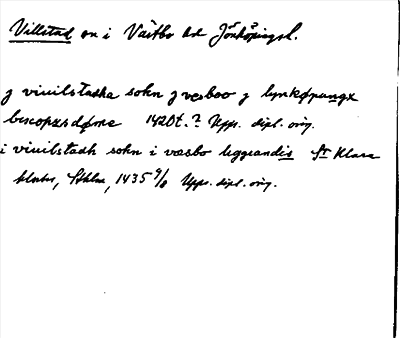 Villstad sn i Västbo hd Jönköpings l.
j viuilstadha sokn j vesboo j lynkøpungx
biscopxsdøme 1420t.? Upps. dipl. orig.
i viuilstadh sokn i wæsbo liggeandis St Klara
kloster, Sthlm, 1435 9/8 Upps. dipl. orig.